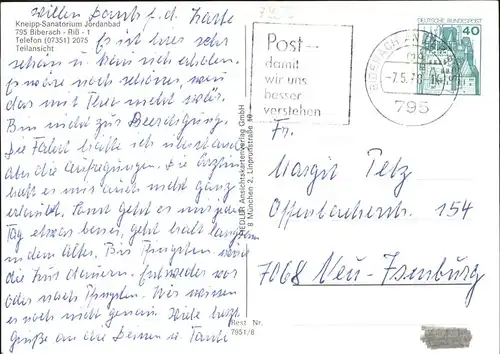 Vielen Dank f. d. Karte
Kneipp-Sanatorium Jordanbad
795 Biberach - Riß - 1
Telefon (07351) 2075
Teilansicht
Es ist hier sehr
schön u. kann sich erholen.
Es wäre noch schöner, wenn
das mit Theo nicht wär.
Bin nicht zur Beerdigung.
Die Fahrt hätte ich
aber die Aufregungen. Die
hätt es mir auch nicht ganz
erlaubt. Sonst geht es mir jeden
Tag etwas besser, geht halt langsam
in dem Alter. Bis Pfingsten wird
die Kur dauern. Entweder vor
oder nach Pfingsten. Wir wissen
es noch nicht genau. Viele herzl.
Grüße an die Deinen u. Tante
REDLER Ansichtskartenverlag GmbH
8 München 2, Linprunstraße
Best. Nr.
7951/8
Post -
damit
wir uns
besser
verstehen
BIBERACH AN
-7.5.78
795
DEUTSCHE BUNDESPOST
40
Fr.
Margit Petz
Offenbacherstr. 154
7068 Neu-Isenburg